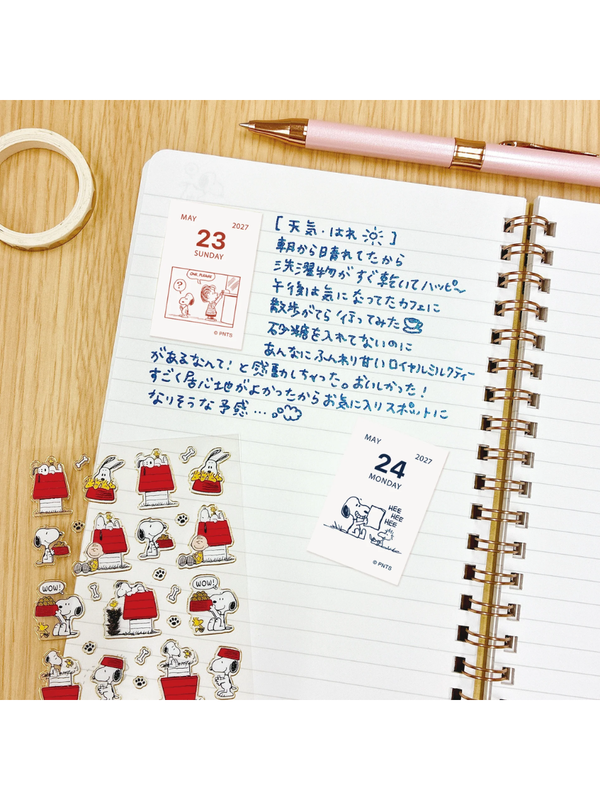 MAY 2027
23
SUNDAY
OINK, PLEASE
?
© PNTS
[ 天気・はれ ]
朝から日晴れてたから
洗濯物がすぐ乾いてハッピ〜
午後は気になってたカフェに
散歩がてら行ってみた
砂糖を入れてないのに
あんなにふんわり甘いロイヤルミルクティー
があるなんて!と感動しちゃった。おいしかった!
すごく居心地がよかったからお気に入りスポットに
なりそうな予感…。
MAY 2027
24
MONDAY
HEE
HEE
HEE
© PNTS
WOW!
WOW!